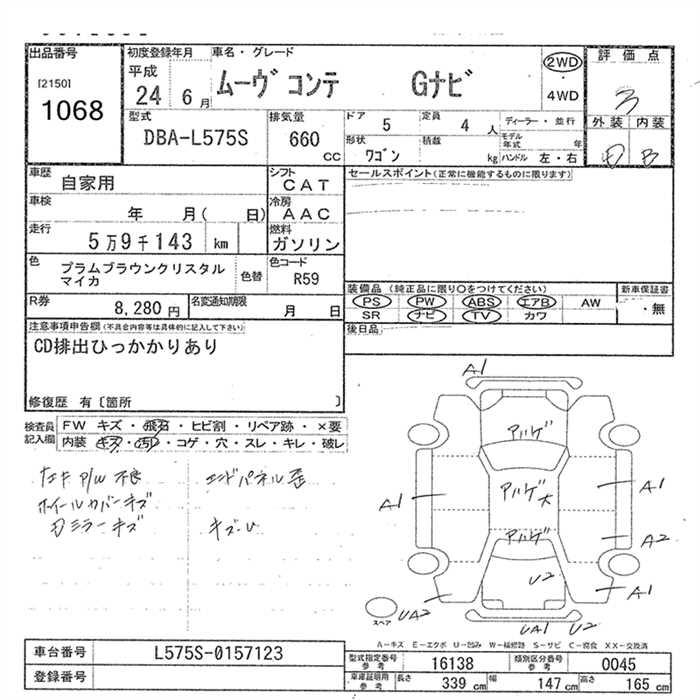 出品番号
[2150]
1068
初度登録年月
平成
24 6月
車名・グレード
ムーヴ コンテ Gナビ
2WD
・
4WD
評価点
3
外装 内装
B
型式
DBA-L575S
排気量
660
CC
ドア
5
定員
4人
ディーラー・並行
形状
ワゴン
積載
kg
モデル年式
年
ハンドル 左・右
車歴
自家用
シフト
CAT
セールスポイント(正常に機能するものに限ります)
車検
年 月( 日)
冷房
AAC
走行
5万9千143 km
燃料
ガソリン
色
プラムブラウンクリスタル
マイカ
色替
色コード
R59
装備品(純正品に限り○をつけてください)
新車保証書
PS PW ABS エアB AW
SR ナビ TV カワ
・無
R券
8,280円
名変通知期限
月 日
後日品
注意事項申告欄(不具合内容等は具体的に記入して下さい)
CD排出ひっかかりあり
修復歴 有〔箇所 〕
検査員
記入欄
FW キズ・飛石・ヒビ割・リペア跡・×要
内装・キズ・汚れ・コゲ・穴・スレ・キレ・破レ
P/W 不良
エンドパネル歪
ホイールカバーキズ
ミラーキズ
キズ・U
A1
アハゲ
A1
アハゲ大
A1
A2
アハゲ
U2
A1
スペア
UA2
UA1
U2
A−キズ E−エクボ U−凹み W−補修跡 S−サビ C−腐食 XX−交換済
車台番号
L575S-0157123
登録番号
型式指定番号
参考
16138
類別区分番号
参考
0045
車庫証明用
参考
長さ
339 cm
幅
147 cm
高さ
165 cm